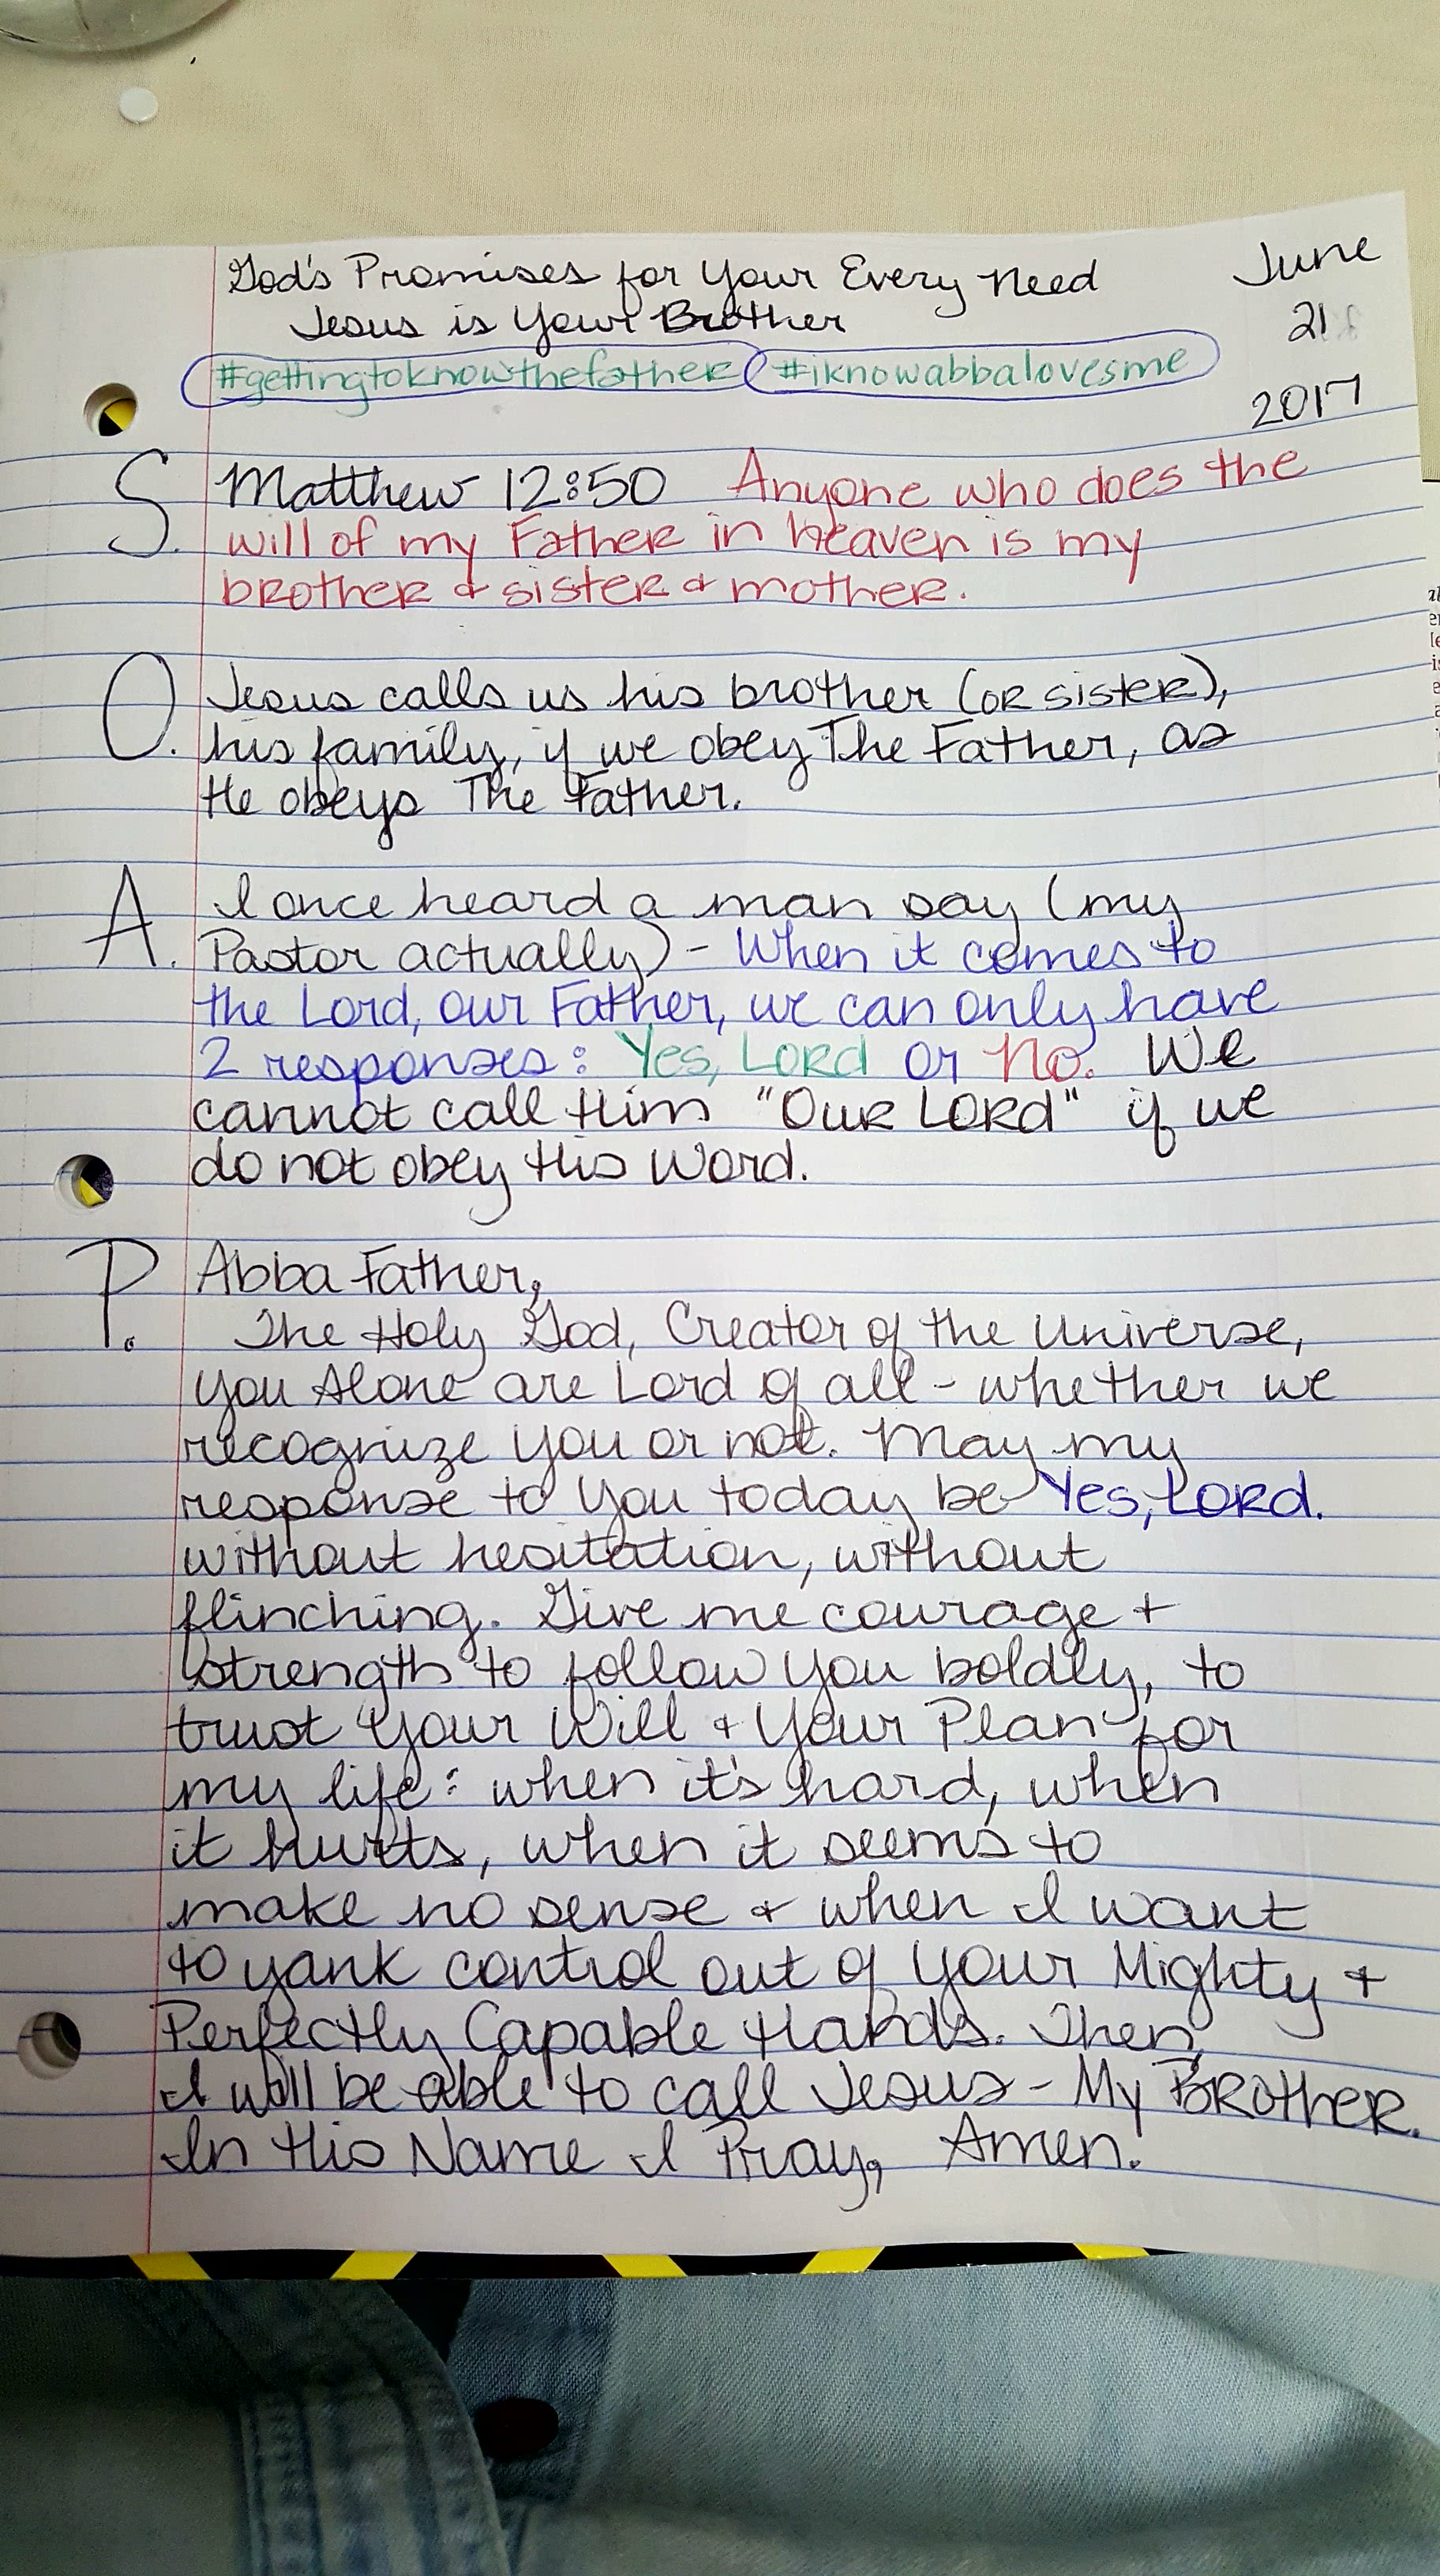 God's Promises for Your Every Need
June
Jesus is Your Brother
21
#gettingtoknowthefather #iknowabbalovesme
2017
S. Matthew 12:50 Anyone who does the
will of my Father in heaven is my
brother & sister & mother.
O. Jesus calls us his brother (or sister),
his family, if we obey The Father, as
He obeys The Father.
A. I once heard a man say (my
Pastor actually) - When it comes to
the Lord, our Father, we can only have
2 responses: Yes, Lord or No. We
cannot call Him "Our Lord" if we
do not obey His Word.
P. Abba Father,
The Holy God, Creator of the Universe,
You Alone are Lord of all - whether we
recognize You or not. May my
response to You today be Yes, Lord.
without hesitation, without
flinching. Give me courage +
strength to follow You boldly, to
trust Your Will + Your Plan for
my life: when it's hard, when
it hurts, when it seems to
make no sense & when I want
to yank control out of Your Mighty +
Perfectly Capable Hands. Then,
I will be able to call Jesus - My Brother.
In His Name I Pray, Amen.